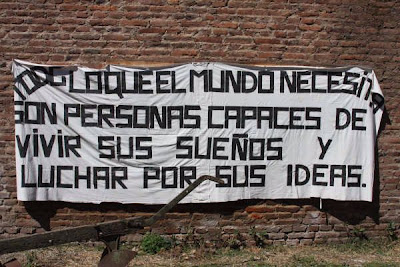 TODO LO QUE EL MUNDO NECESITA
SON PERSONAS CAPACES DE
VIVIR SUS SUEÑOS Y
LUCHAR POR SUS IDEAS.